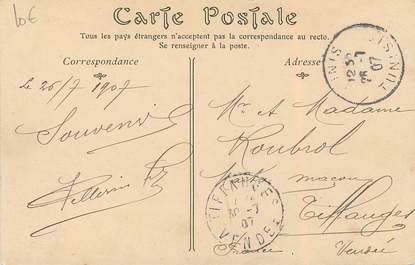 10€
Carte Postale
Tous les pays étrangers n'acceptent pas la correspondance au recto.
Se renseigner à la poste.
Correspondance
Adresse
Le 26/7 1907
Souvenir
Pellerin
Mr et Madame
Roubrol
maçon
Tiffauges
France Vendée
TUNIS TUNISIE
12 30
26 -7
07
TIFFAUGES
07
VENDEE